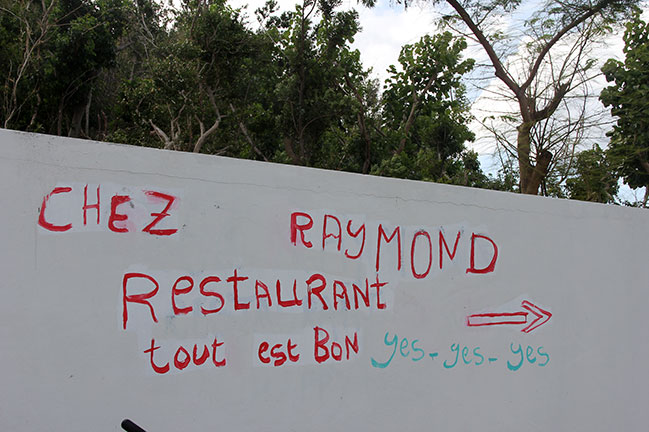 CHEZ RAYMOND
RestAURANt
tout est BON yes-yes-yes